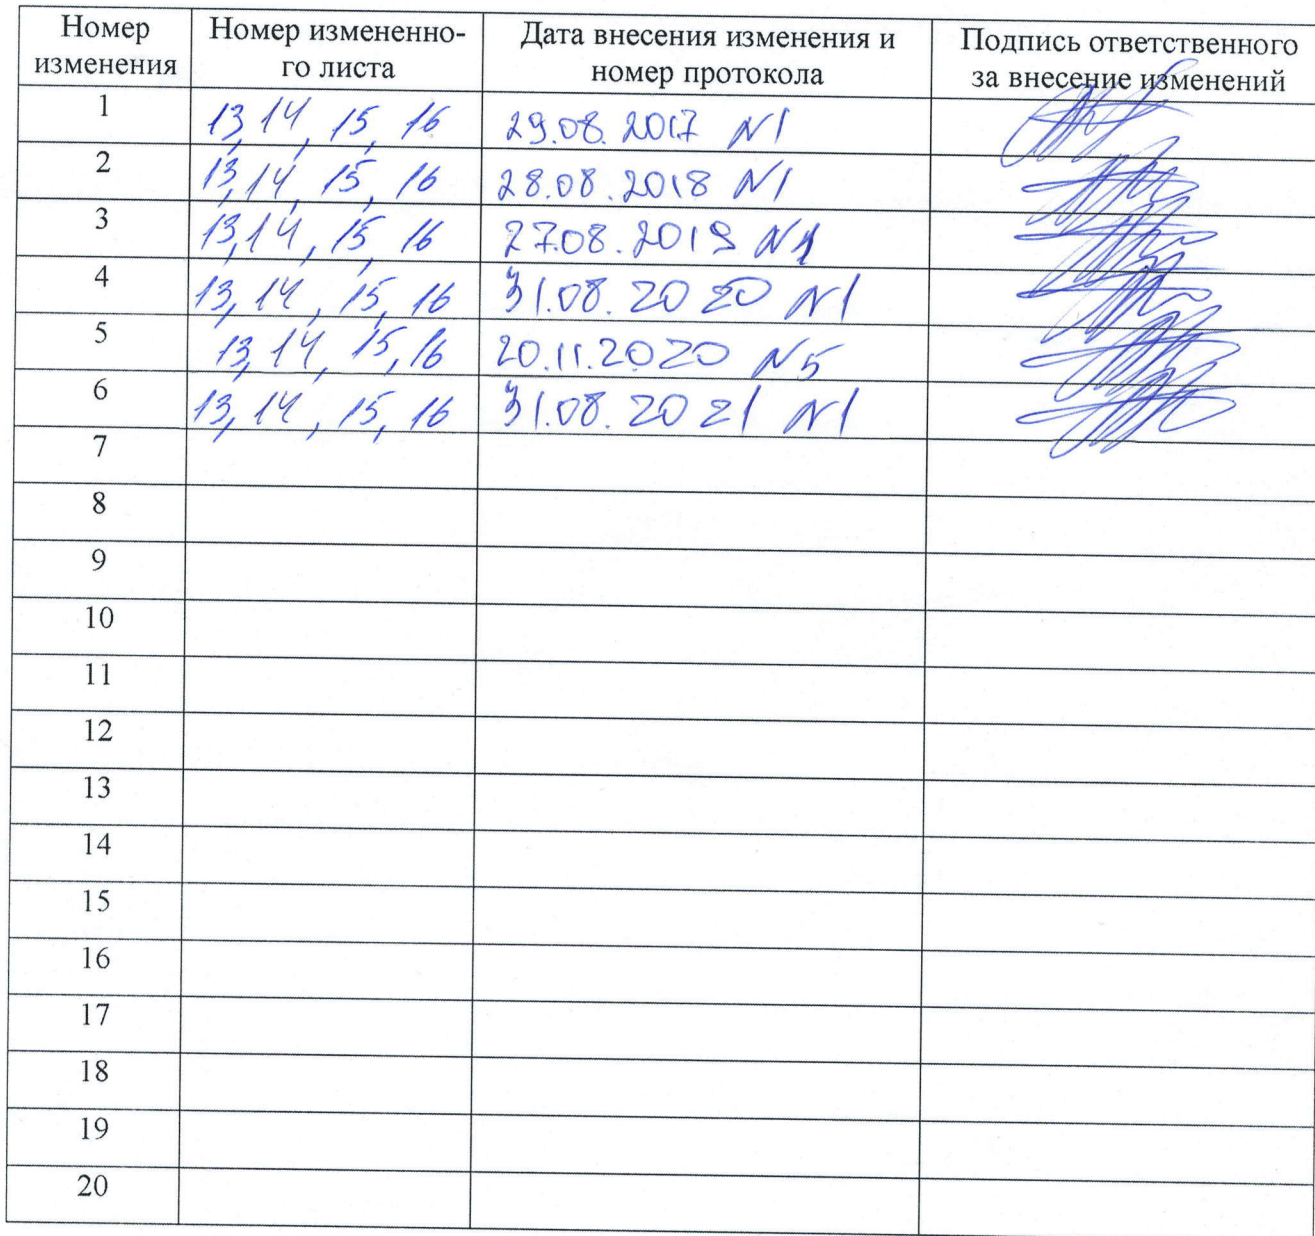 Номер изменения | Номер измененно- го листа | Дата внесения изменения и номер протокола | Подпись ответственного за внесение изменений
1 | 13, 14, 15, 16 | 29.08.2017 N1
2 | 13, 14, 15, 16 | 28.08.2018 N1
3 | 13, 14, 15, 16 | 27.08.2019 N1
4 | 13, 14, 15, 16 | 31.08.2020 N1
5 | 13, 14, 15, 16 | 20.11.2020 N5
6 | 13, 14, 15, 16 | 31.08.2021 N1
7
8
9
10
11
12
13
14
15
16
17
18
19
20